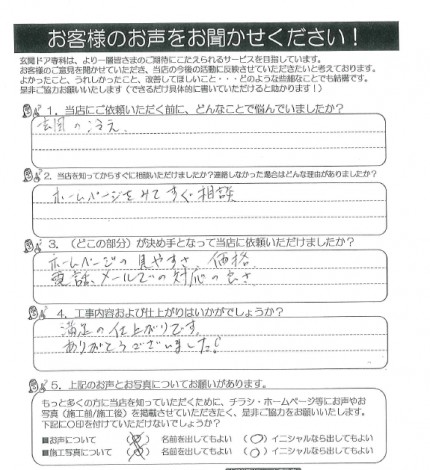 お客様のお声をお聞かせください！
玄関ドア専科は、より一層皆さまのご期待にこたえられるサービスを目指しています。
お客様のご意見を聞かせていただき、当店の今後の活動に反映させていただきたいと考えております。
よかったこと、うれしかったこと、改善してほしいこと・・・どのような些細なことでも結構です。
是非ご協力お願いいたします（できるだけ具体的に書いていただけると助かります！）
1．当店にご依頼いただく前に、どんなことで悩んでいましたか？
玄関の冷え、
2．当店を知ってからすぐに相談いただけましたか？連絡しなかった場合はどんな理由がありましたか？
ホームページをみてすぐ相談
3．（どこの部分）が決め手となって当店に依頼いただけましたか？
ホームページの見やすさ、価格、
電話、メールでの対応の良さ
4．工事内容および仕上がりはいかがでしょうか？
満足の仕上がりです。
ありがとうございました！
5．上記のお声とお写真についてお願いがあります。
もっと多くの方に当店を知っていただくために、チラシ・ホームページ等にお声やお
写真（施工前/施工後）を掲載させていただきたく、是非ご協力をお願いいたします。
下記に〇印を付けていただけないでしょうか？
■お声について　（　）名前を出してもよい　（〇）イニシャルなら出してもよい
■施工写真について　（　）名前を出してもよい　（〇）イニシャルなら出してもよい